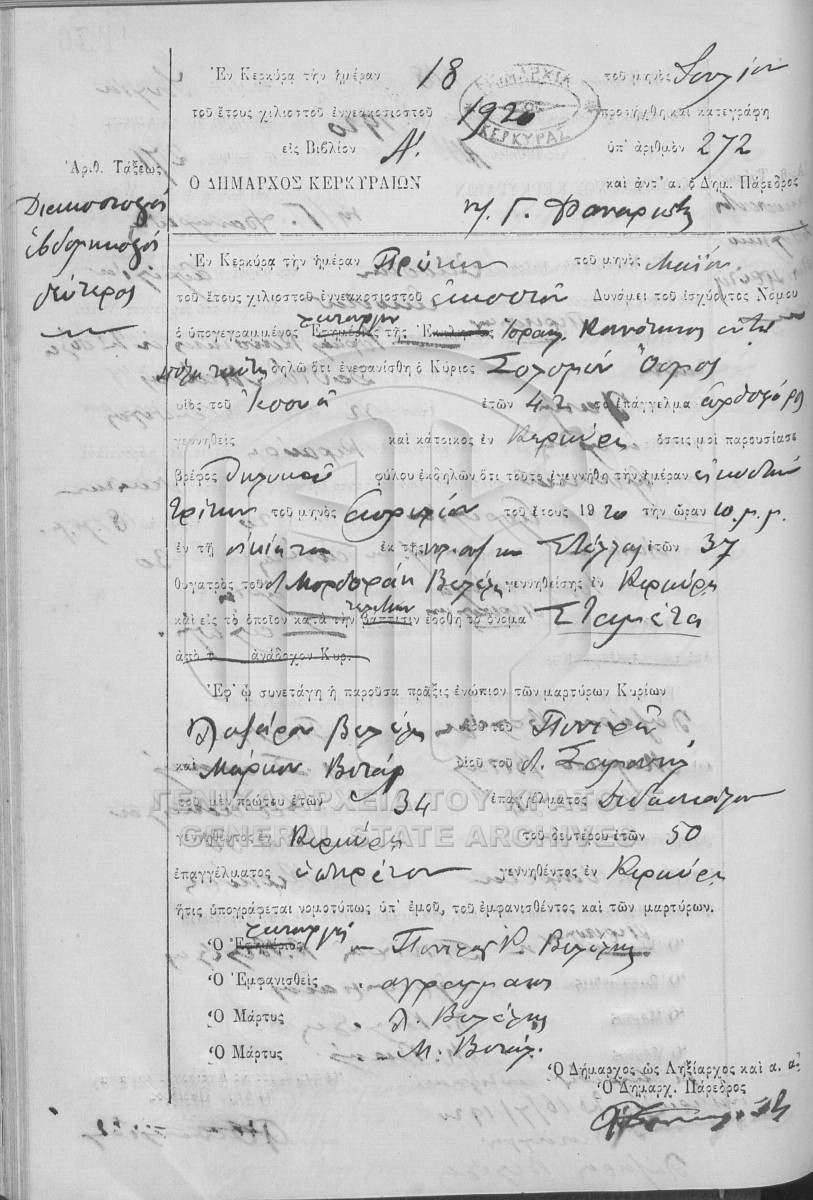 Ἐν Κερκύρᾳ τὴν ἡμέραν 18 τοῦ μηνὸς Ἰουλίου
τοῦ ἔτους χιλιοστοῦ ἐννεακοσιοστοῦ 1920 προσήχθη καὶ κατεγράφη
εἰς Βιβλίον Α′. ὑπ' ἀριθμὸν 272
Ο ΔΗΜΑΡΧΟΣ ΚΕΡΚΥΡΑΙΩΝ καὶ ἀντ' α. ὁ Δημ. Πάρεδρος
ΔΗΜΑΡΧΙΑ ΚΕΡΚΥΡΑΣ
Ἀριθ. Τάξεως
Διακοσιοστὸς
ἑβδομηκοστὸς
δεύτερος
Ἐν Κερκύρᾳ τὴν ἡμέραν Πρώτην τοῦ μηνὸς Μαΐου
τοῦ ἔτους χιλιοστοῦ ἐννεακοσιοστοῦ εἰκοστοῦ Δυνάμει τοῦ ἰσχύοντος Νόμου
ὁ ὑπογεγραμμένος Ἐφημέριος τῆς Ἐκκλησίας Ἰσραηλ. Κοινότητος
δηλῶ ὅτι ἐνεφανίσθη ὁ Κύριος Σολομὼν
υἱὸς τοῦ ἐτῶν 42 τὸ ἐπάγγελμα
γεννηθεὶς καὶ κάτοικος ἐν Κερκύρᾳ ὅστις μοὶ παρουσίασε
βρέφος θηλυκοῦ φύλου ἐκδηλῶν ὅτι τοῦτο ἐγεννήθη τὴν ἡμέραν εἰκοστὴν
τρίτην τοῦ μηνὸς Ἀπριλίου τοῦ ἔτους 1920 τὴν ὥραν 10 μ.μ.
ἐν τῇ οἰκίᾳ του ἐκ τῆς συζύγου του Στέλλας ἐτῶν 37
θυγατρὸς τοῦ Μορδοχάη Βελέλη γεννηθείσης ἐν Κερκύρᾳ
καὶ εἰς τὸ ὁποῖον κατὰ τὴν βάπτισιν ἐδόθη τὸ ὄνομα Σταμέτα
ἀπὸ τ ἀνάδοχον Κυρ.
Ἐφ' ᾧ συνετάγη ἡ παροῦσα πρᾶξις ἐνώπιον τῶν μαρτύρων Κυρίων
Λαζάρου Βελέλη υἱοῦ τοῦ
καὶ Μάρκου υἱοῦ τοῦ
τοῦ μὲν πρώτου ἐτῶν 34 ἐπαγγέλματος διδασκάλου
γεννηθέντος ἐν Κερκύρᾳ τοῦ δευτέρου ἐτῶν 50
ἐπαγγέλματος ὑπηρέτου γεννηθέντος ἐν Κερκύρᾳ
ἥτις ὑπογράφεται νομοτύπως ὑπ' ἐμοῦ, τοῦ ἐμφανισθέντος καὶ τῶν μαρτύρων.
Ὁ Ἐφημέριος Βελέλης
Ὁ Ἐμφανισθεὶς ἀγράμματος
Ὁ Μάρτυς Λ. Βελέλης
Ὁ Μάρτυς Μ.
Ὁ Δήμαρχος ὡς Ληξίαρχος καὶ α. α.
Ὁ Δημαρχ. Πάρεδρος
ΓΕΝΙΚΑ ΑΡΧΕΙΑ ΤΟΥ ΚΡΑΤΟΥΣ
GENERAL STATE ARCHIVES